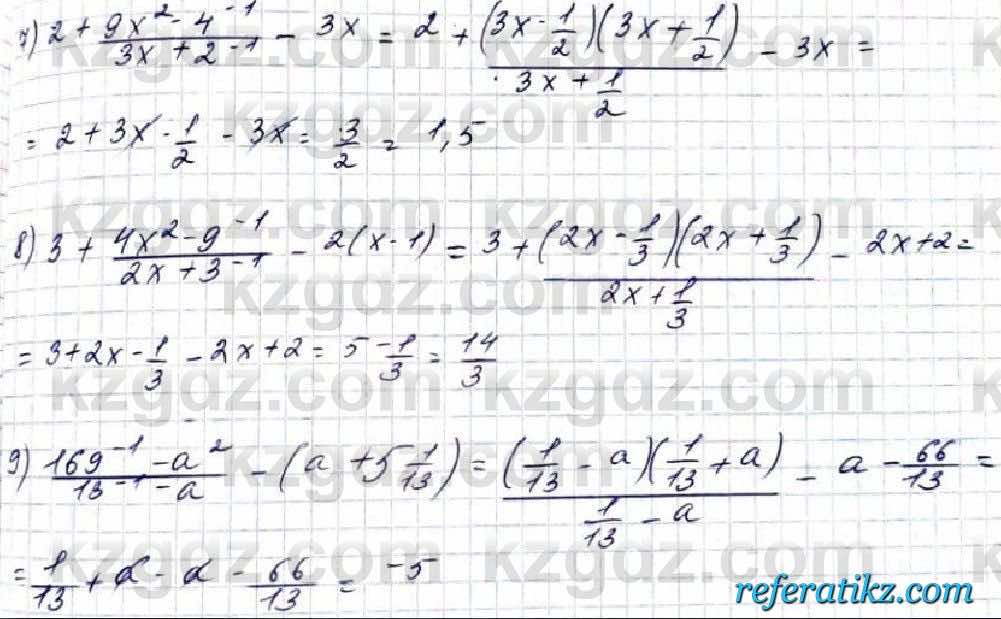 7) 2 + (9x² - 4⁻¹)/(3x + 2⁻¹) - 3x = 2 + ((3x - 1/2)(3x + 1/2))/(3x + 1/2) - 3x =
= 2 + 3x - 1/2 - 3x = 3/2 = 1,5
8) 3 + (4x² - 9⁻¹)/(2x + 3⁻¹) - 2(x - 1) = 3 + ((2x - 1/3)(2x + 1/3))/(2x + 1/3) - 2x + 2 =
= 3 + 2x - 1/3 - 2x + 2 = 5 - 1/3 = 14/3
9) (169⁻¹ - a²)/(13⁻¹ - a) - (a + 5 1/13) = ((1/13 - a)(1/13 + a))/(1/13 - a) - a - 66/13 =
= 1/13 + a - a - 66/13 = -5
kzgdz.com
referatikz.com